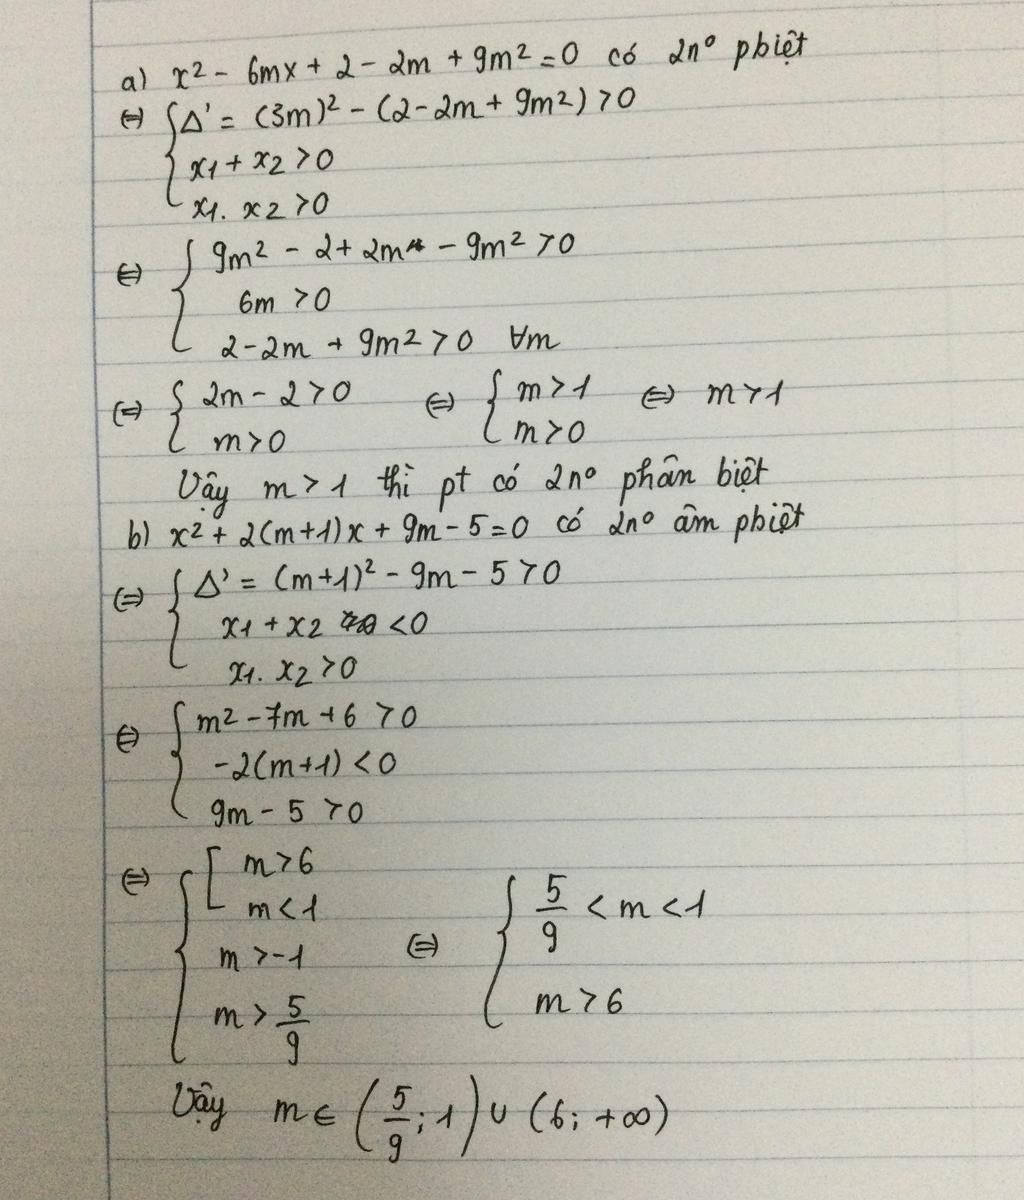 a) x² - 6mx + 2 - 2m + 9m² = 0 có 2n° pbiệt
⇔ { Δ' = (3m)² - (2 - 2m + 9m²) > 0
x1 + x2 > 0
x1. x2 > 0
⇔ { 9m² - 2 + 2m - 9m² > 0
6m > 0
2 - 2m + 9m² > 0 ∀m
⇔ { 2m - 2 > 0 ⇔ { m > 1 ⇔ m > 1
m > 0 m > 0
Vậy m > 1 thì pt có 2n° phân biệt
b) x² + 2(m+1)x + 9m - 5 = 0 có 2n° âm pbiệt
⇔ { Δ' = (m+1)² - 9m - 5 > 0
x1 + x2 < 0
x1. x2 > 0
⇔ { m² - 7m + 6 > 0
-2(m+1) < 0
9m - 5 > 0
⇔ { [ m > 6
m < 1
m > -1
m > 5/9
⇔ { 5/9 < m < 1
m > 6
Vậy m ∈ (5/9; 1) ∪ (6; +∞)